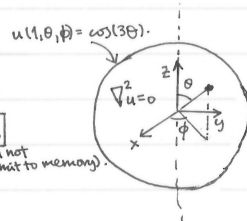 u(1,θ,ϕ) = cos(3θ).
z
θ
∇²u=0
y
x
ϕ
not
mit to memory).